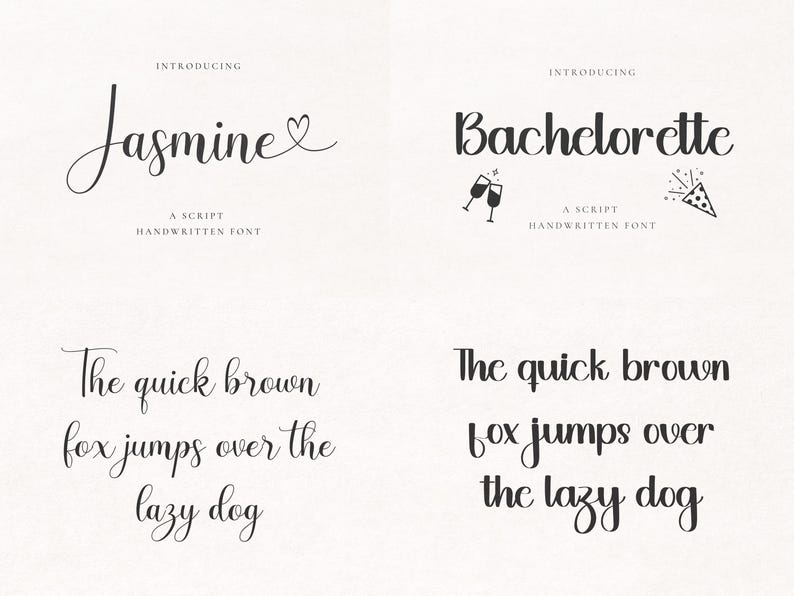 INTRODUCING
Jasmine
A SCRIPT
HANDWRITTEN FONT
INTRODUCING
Bachelorette
A SCRIPT
HANDWRITTEN FONT
The quick brown
fox jumps over the
lazy dog
The quick brown
fox jumps over
the lazy dog